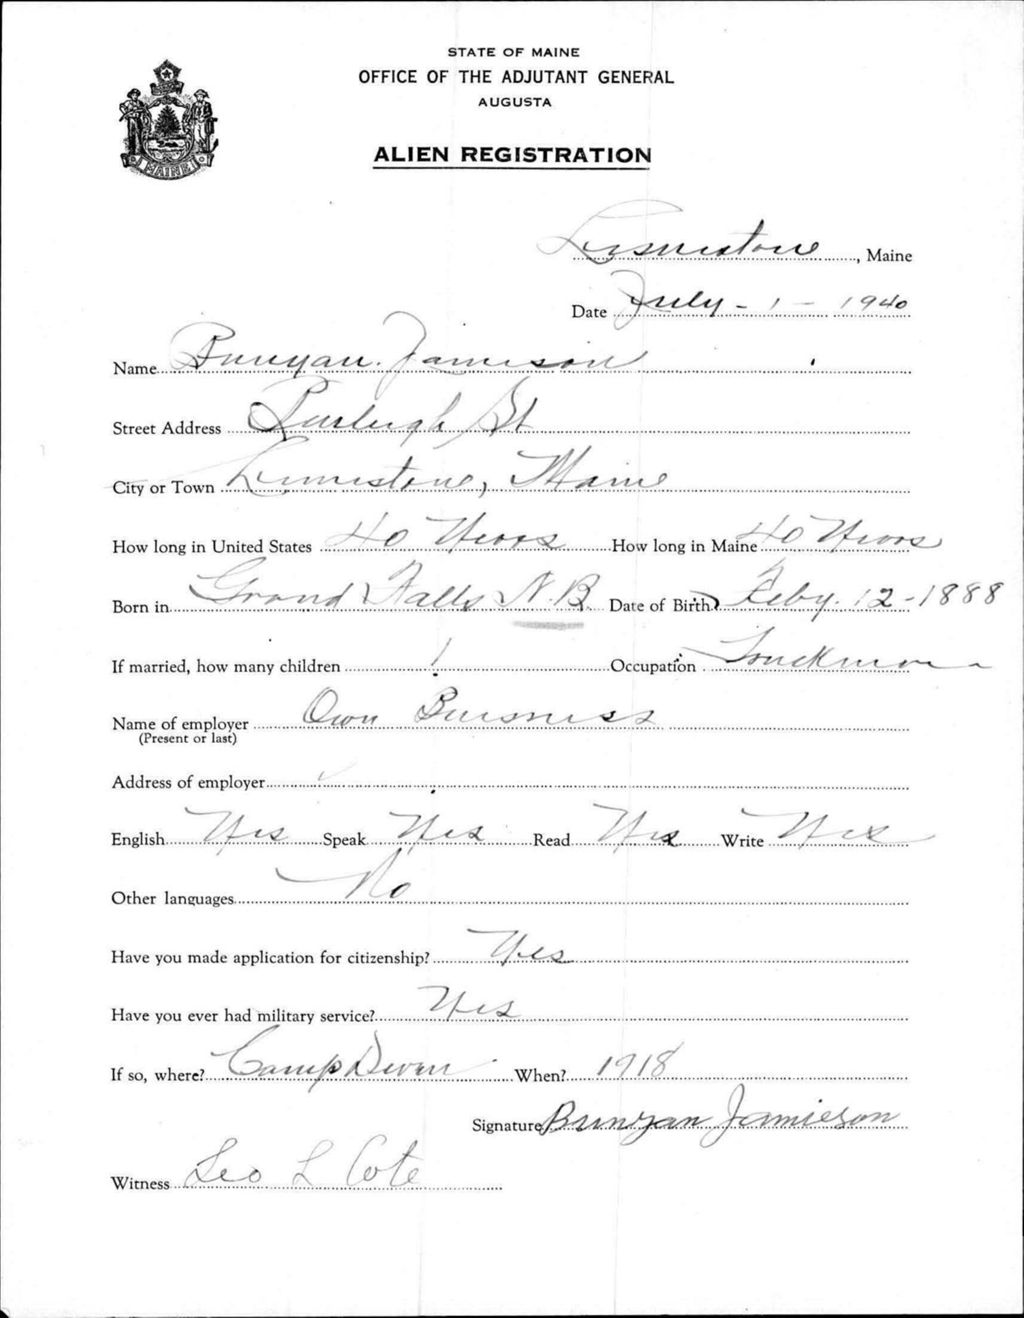 STATE OF MAINE
OFFICE OF THE ADJUTANT GENERAL
AUGUSTA
MAINE
ALIEN REGISTRATION
Limestone, Maine
Date July - 1 - 1940
Name Bunyan Jamieson
Street Address Burleigh St
City or Town Limestone, Maine
How long in United States 40 Years How long in Maine 40 Years
Born in Grand Falls N.B. Date of Birth Feby. 12 - 1888
If married, how many children 1 Occupation Truckman
Name of employer Own Buisness
(Present or last)
Address of employer
English Yes Speak Yes Read Yes Write Yes
Other languages No
Have you made application for citizenship? Yes
Have you ever had military service? Yes
If so, where? Camp Deven When? 1918
Signature Bunyan Jamieson
Witness Leo L Cote